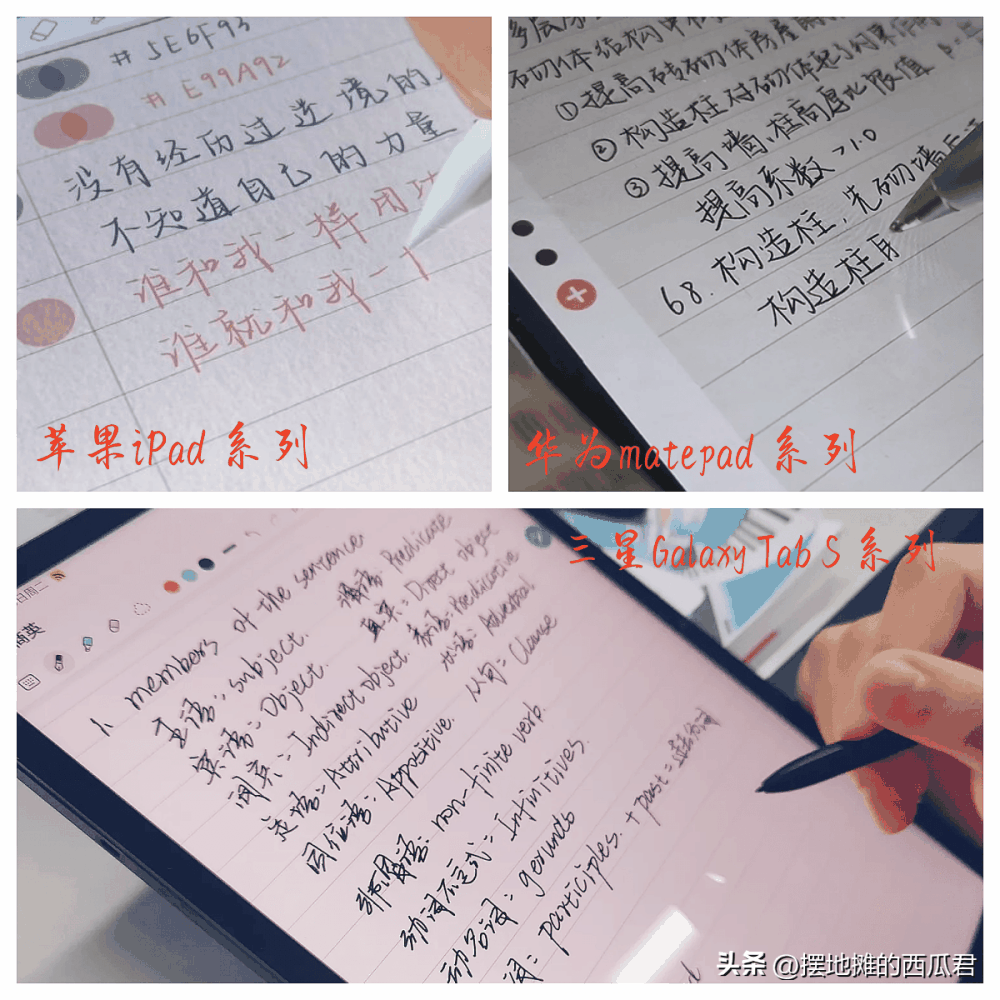 # 5E6F93
# E99A92
没有经历过逆境的人
不知道自己的力量
谁和我一样用功
谁就和我一
苹果iPad 系列
多层
砌体结构中
①提高砖砌体房屋
②构造柱对砌体起了约束作用
③提高墙、柱高厚比限值
提高系数 >1.0
68. 构造柱, 先砌墙后
构造柱
华为matepad 系列
三星Galaxy Tab S 系列
日周二
简英
1. members of the sentence
主语: subject.
宾语: Object.
间宾: Indirect object.
定语: Attributive
同位语: Appositive.
谓语: Predicate
直宾: Direct object
表语: Predicative
状语: Adverbial
从句: Clause
非谓语: non-finite verb.
动词不定式: Infinitives.
动名词: gerunds
词: participles. + past =
头条 @摆地摊的西瓜君